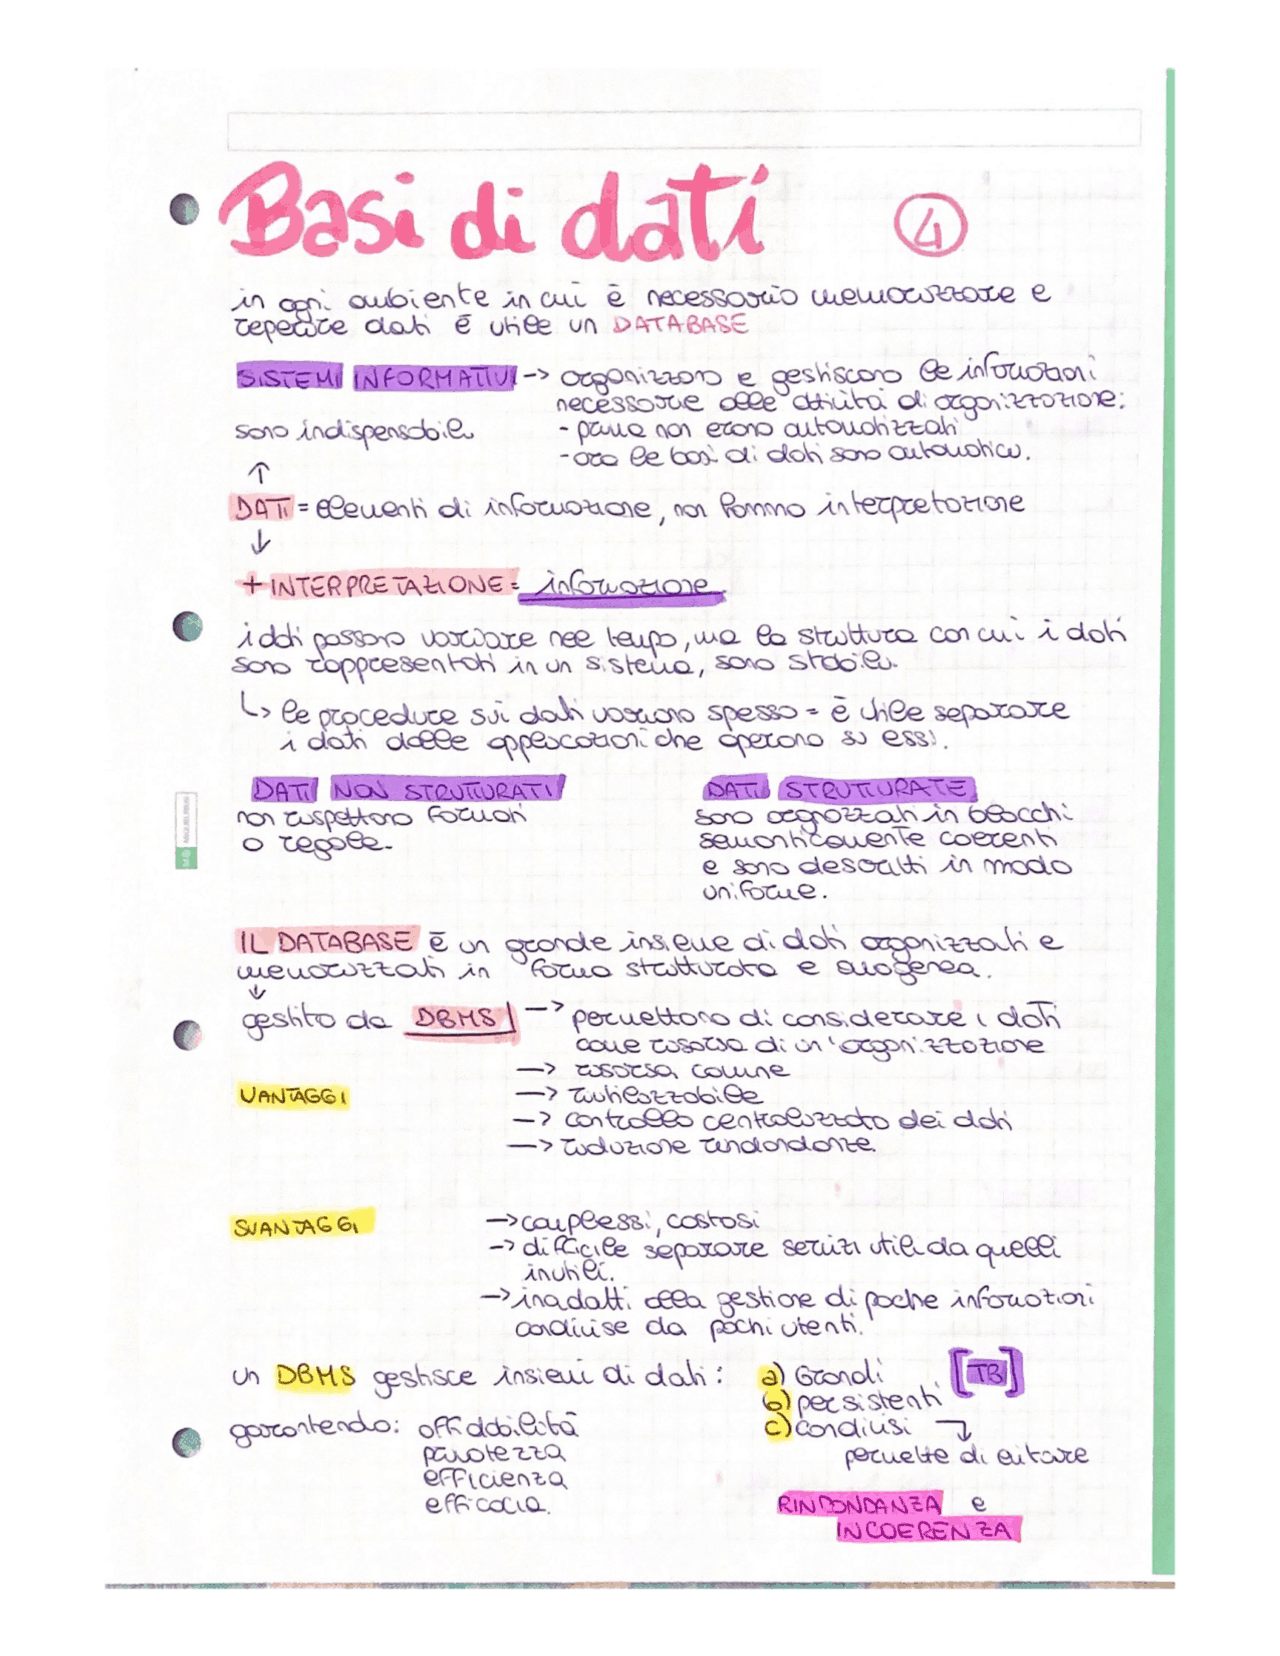 Basi di dati
4
in ogni ambiente in cui è necessario memorizzare e
reperire dati è utile un DATABASE
SISTEMI INFORMATIVI -> organizzano e gestiscono le informazioni
necessarie alle attività di organizzazione:
sono indispensabili
- prima non erano automatizzati
- ora le basi di dati sono automatica.
↑
DATI = elementi di informazione, non hanno interpretazione
↓
+ INTERPRETAZIONE = informazione.
i dati possono variare nel tempo, ma la struttura con cui i dati
sono rappresentati in un sistema, sono stabili.
↳ le procedure sui dati variano spesso = è utile separare
i dati dalle applicazioni che operano su essi.
DATI NON STRUTTURATI
non rispettano formati
o regole.
DATI STRUTTURATE
sono orgnizzati in blocchi
semanticamente coerenti
e sono descritti in modo
uniforme.
IL DATABASE è un grande insieme di dati organizzati e
memorizzati in forma strutturata e omogenea.
↓
gestito da DBMS -> permettono di considerare i dati
come risorsa di un'organizzazione
-> risorsa comune
VANTAGGI
-> riutilizzabile
-> controllo centralizzato dei dati
-> riduzione rindondanze.
SVANTAGGI
-> complessi, costosi
-> difficile separare servizi utili da quelli
inutili.
-> inadatti alla gestione di poche informazioni
condivise da pochi utenti.
un DBMS gestisce insiemi di dati: a) Grandi [TB]
b) persistenti
garantendo: affidabilità
c) condivisi ↴
privatezza
permette di evitare
efficienza
efficacia.
RINDONDANZA e
INCOERENZA